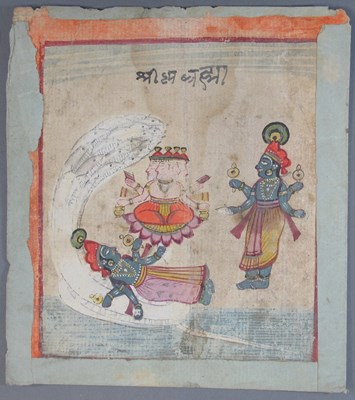 श्री ब्रह्मा